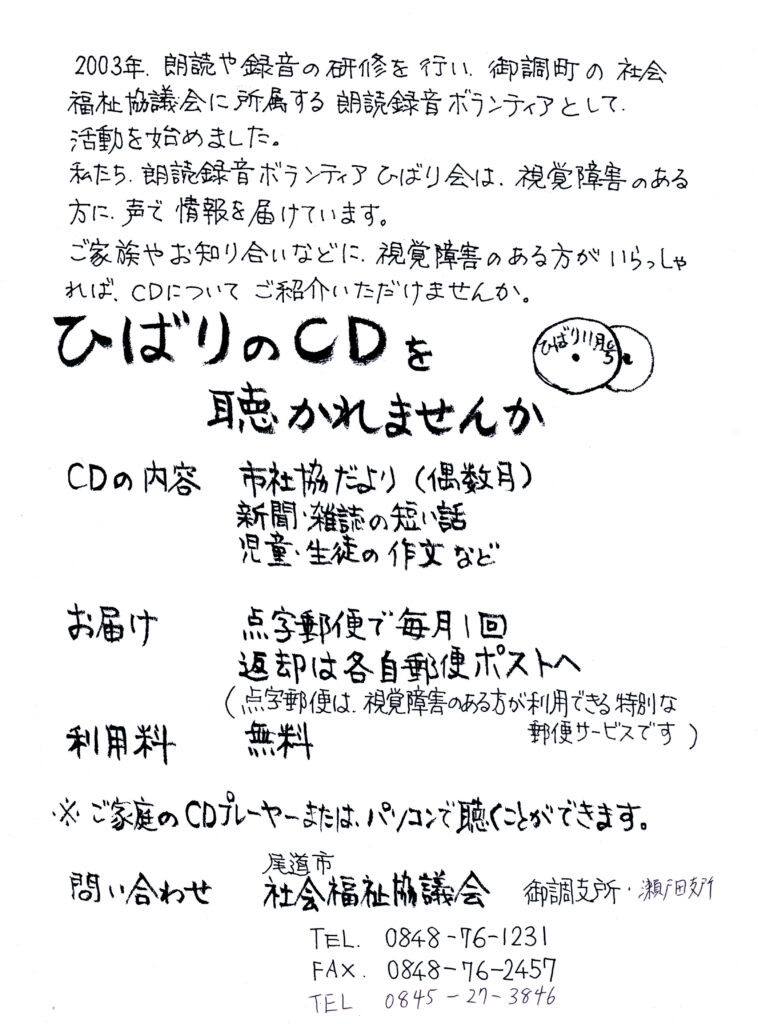 2003年、朗読や録音の研修を行い、御調町の社会
福祉協議会に所属する朗読録音ボランティアとして、
活動を始めました。
私たち、朗読録音ボランティアひばり会は、視覚障害のある
方に、声で情報を届けています。
ご家族やお知り合いなどに、視覚障害のある方がいらっしゃ
れば、CDについてご紹介いただけませんか。
ひばりのCDを
ひばり11月
聴かれませんか
CDの内容 市社協だより(偶数月)
新聞・雑誌の短い話
児童・生徒の作文など
お届け 点字郵便で毎月1回
返却は各自郵便ポストへ
(点字郵便は、視覚障害のある方が利用できる特別な
郵便サービスです)
利用料 無料
※ご家庭のCDプレーヤーまたは、パソコンで聴くことができます。
尾道市
問い合わせ 社会福祉協議会 御調支所・瀬戸田支所
TEL. 0848-76-1231
FAX. 0848-76-2457
TEL 0845-27-3846